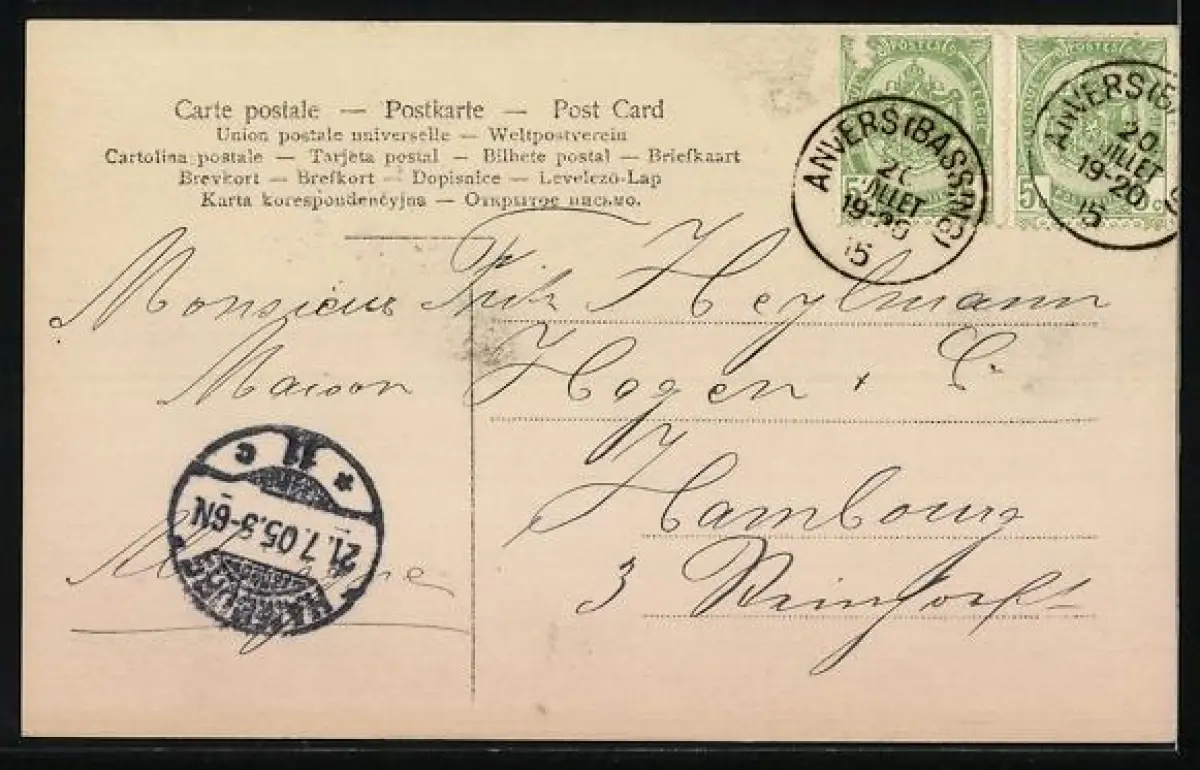 Carte postale — Postkarte — Post Card
Union postale universelle — Weltpostverein
Cartolina postale — Tarjeta postal — Bilhete postal — Briefkaart
Brevkort — Brefkort — Dopisnice — Levelező-Lap
Karta korespondencyjna — Открытое письмо.
POSTES
5
ANVERS (BASSINS)
20
JUILLET
19-20
5
POSTES
5 c
ANVERS (B
20
JUILLET
19-20
5
Monsieur Fritz Heylmann
Maison Hagen & Cie
Hambourg
3
HAMBURG
21.7.05.5-6N
* 11 c